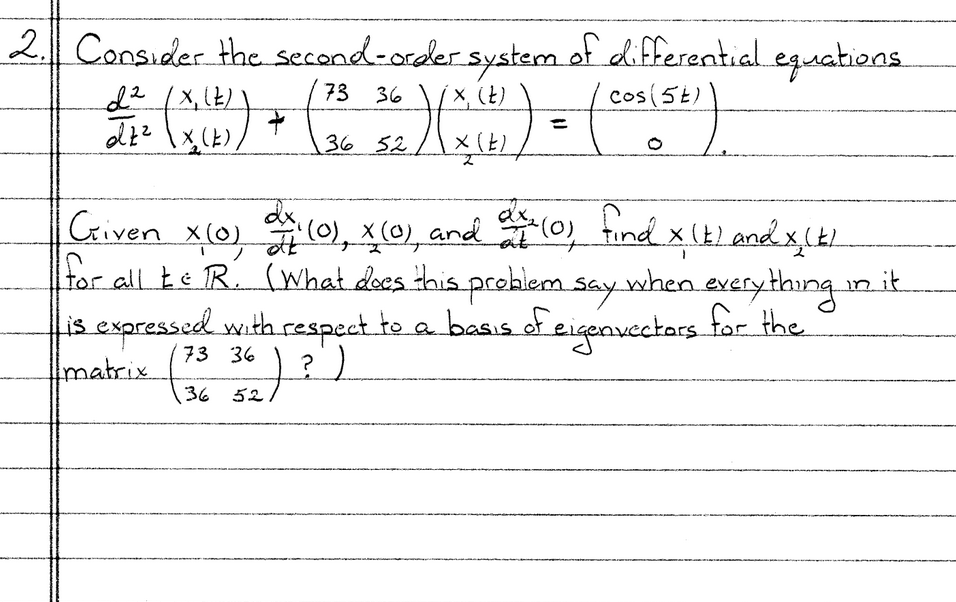 2. Consider the second-order system of differential equations
d²/dt² (x₁(t) x₂(t)) + (73 36 36 52)(x₁(t) x₂(t)) = (cos(5t) 0).
Given x₁(0), dx₁/dt(0), x₂(0), and dx₂/dt(0), find x₁(t) and x₂(t)
for all t ∈ ℝ. (What does this problem say when everything in it
is expressed with respect to a basis of eigenvectors for the
matrix (73 36 36 52) ? )